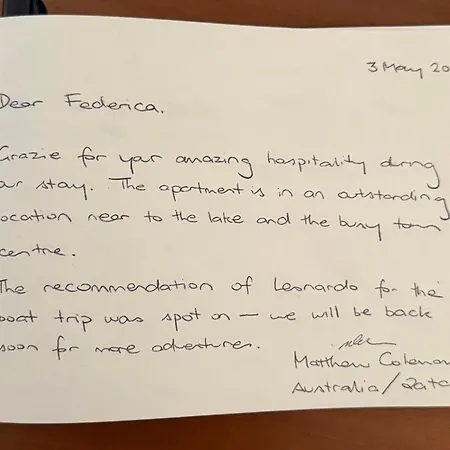 3 May 20
Dear Federica.
Grazie for your amazing hospitality during
our stay. The apartment is in an outstanding
location near to the lake and the busy town
centre.
The recommendation of Leonardo for the
boat trip was spot on – we will be back
soon for more adventures.
Matthew Coleman
Australia/Qatar